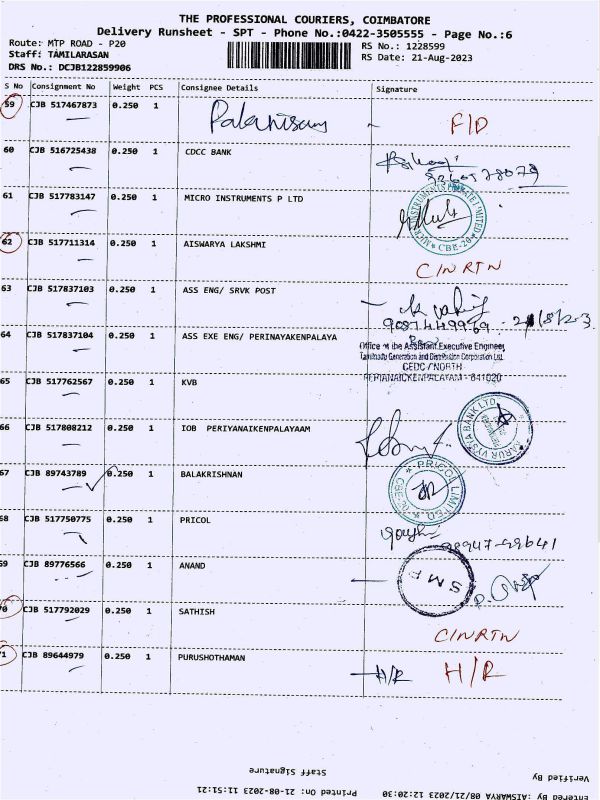 THE PROFESSIONAL COURIERS, COIMBATORE
Delivery Runsheet - SPT - Phone No.:0422-3505555 - Page No.:6
Route: MTP ROAD - P20
Staff: TAMILARASAN
DRS No.: DCJB122859906
RS No.: 1228599
RS Date: 21-Aug-2023
S No Consignment No Weight PCS Consignee Details Signature
59 CJB 517467873 0.250 1 Palanisamy F/D
60 CJB 516725438 0.250 1 CDCC BANK
61 CJB 517783147 0.250 1 MICRO INSTRUMENTS P LTD
62 CJB 517711314 0.250 1 AISWARYA LAKSHMI C/N RTN
63 CJB 517837103 0.250 1 ASS ENG/ SRVK POST
21/8/23
64 CJB 517837104 0.250 1 ASS EXE ENG/ PERINAYAKENPALAYA
Office of the Assistant Executive Engineer
Tamilnadu Generation and Distribution Corporation Ltd.
CEDC / NORTH
PERIANAICKENPALAYAM - 641020
65 CJB 517762567 0.250 1 KVB
KARUR VYSYA BANK LTD
66 CJB 517808212 0.250 1 IOB PERIYANAIKENPALAYAAM
67 CJB 89743789 0.250 1 BALAKRISHNAN
PRICOL LIMITED
68 CJB 517750775 0.250 1 PRICOL
69 CJB 89776566 0.250 1 ANAND
70 CJB 517792029 0.250 1 SATHISH C/N RTN
71 CJB 89644979 0.250 1 PURUSHOTHAMAN H/R H/R
Staff Signature
Verified By
Printed On: 21-08-2023 11:51:21
Entered By :AISWARYA 08/21/2023 12:20:30